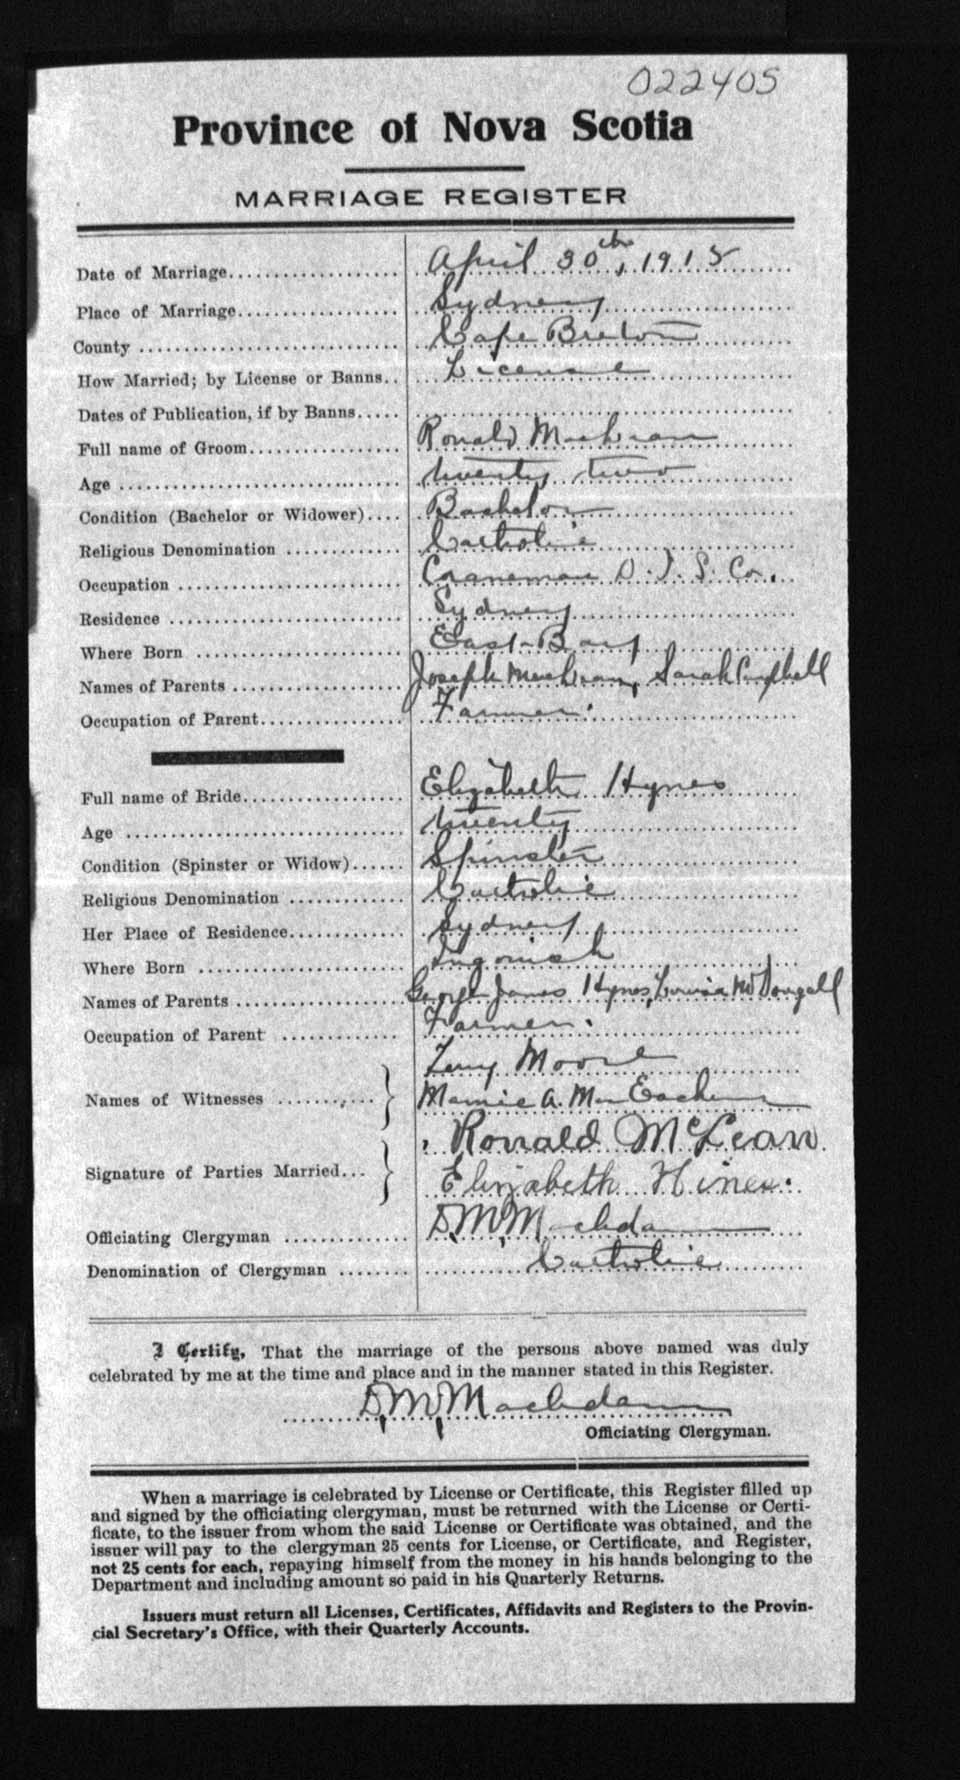 022405
Province of Nova Scotia
MARRIAGE REGISTER
Date of Marriage April 30th, 1915
Place of Marriage Sydney
County Cape Breton
How Married; by License or Banns License
Dates of Publication, if by Banns
Full name of Groom Ronald MacLean
Age twenty two
Condition (Bachelor or Widower) Bachelor
Religious Denomination Catholic
Occupation Craneman D. I. S. Co.
Residence Sydney
Where Born East Bay
Names of Parents Joseph MacLean, Sarah Campbell
Occupation of Parent Farmer.
Full name of Bride Elizabeth Hynes
Age twenty
Condition (Spinster or Widow) Spinster
Religious Denomination Catholic
Her Place of Residence Sydney
Where Born Ingonish
Names of Parents George James Hynes, Louisa McDougall
Occupation of Parent Farmer.
Moore
Names of Witnesses Mamie A. MacEachern
Ronald McLean
Signature of Parties Married Elizabeth Hines.
Officiating Clergyman D. M. MacAdam
Denomination of Clergyman Catholic
I Certify, That the marriage of the persons above named was duly
celebrated by me at the time and place and in the manner stated in this Register.
D. M. MacAdam
Officiating Clergyman.
When a marriage is celebrated by License or Certificate, this Register filled up
and signed by the officiating clergyman, must be returned with the License or Certi-
ficate, to the issuer from whom the said License or Certificate was obtained, and the
issuer will pay to the clergyman 25 cents for License, or Certificate, and Register,
not 25 cents for each, repaying himself from the money in his hands belonging to the
Department and including amount so paid in his Quarterly Returns.
Issuers must return all Licenses, Certificates, Affidavits and Registers to the Provin-
cial Secretary's Office, with their Quarterly Accounts.